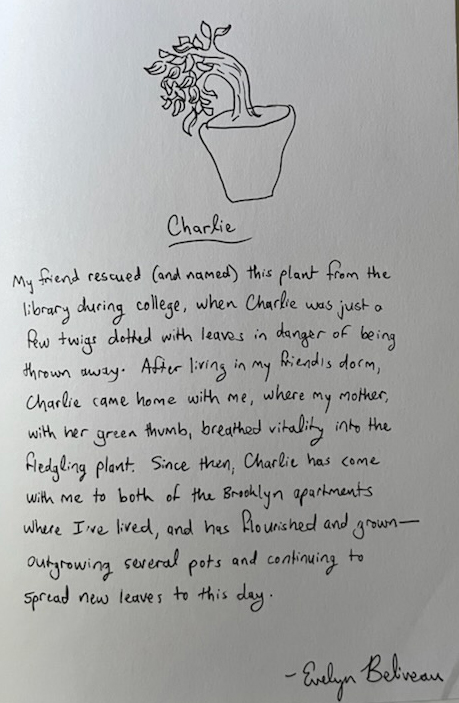 Charlie
My friend rescued (and named) this plant from the
library during college, when Charlie was just a
few twigs dotted with leaves in danger of being
thrown away. After living in my friend's dorm,
Charlie came home with me, where my mother,
with her green thumb, breathed vitality into the
fledgling plant. Since then, Charlie has come
with me to both of the Brooklyn apartments
where I've lived, and has flourished and grown—
outgrowing several pots and continuing to
spread new leaves to this day.
- Evelyn Beliveau